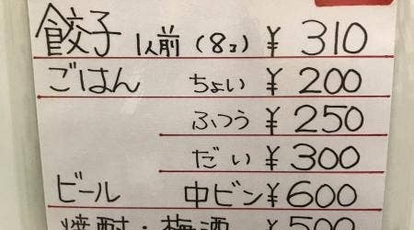 餃子 1人前(8コ) ¥310
ごはん ちょい ¥200
ふつう ¥250
だい ¥300
ビール 中ビン ¥600
焼酎・梅酒 ¥500